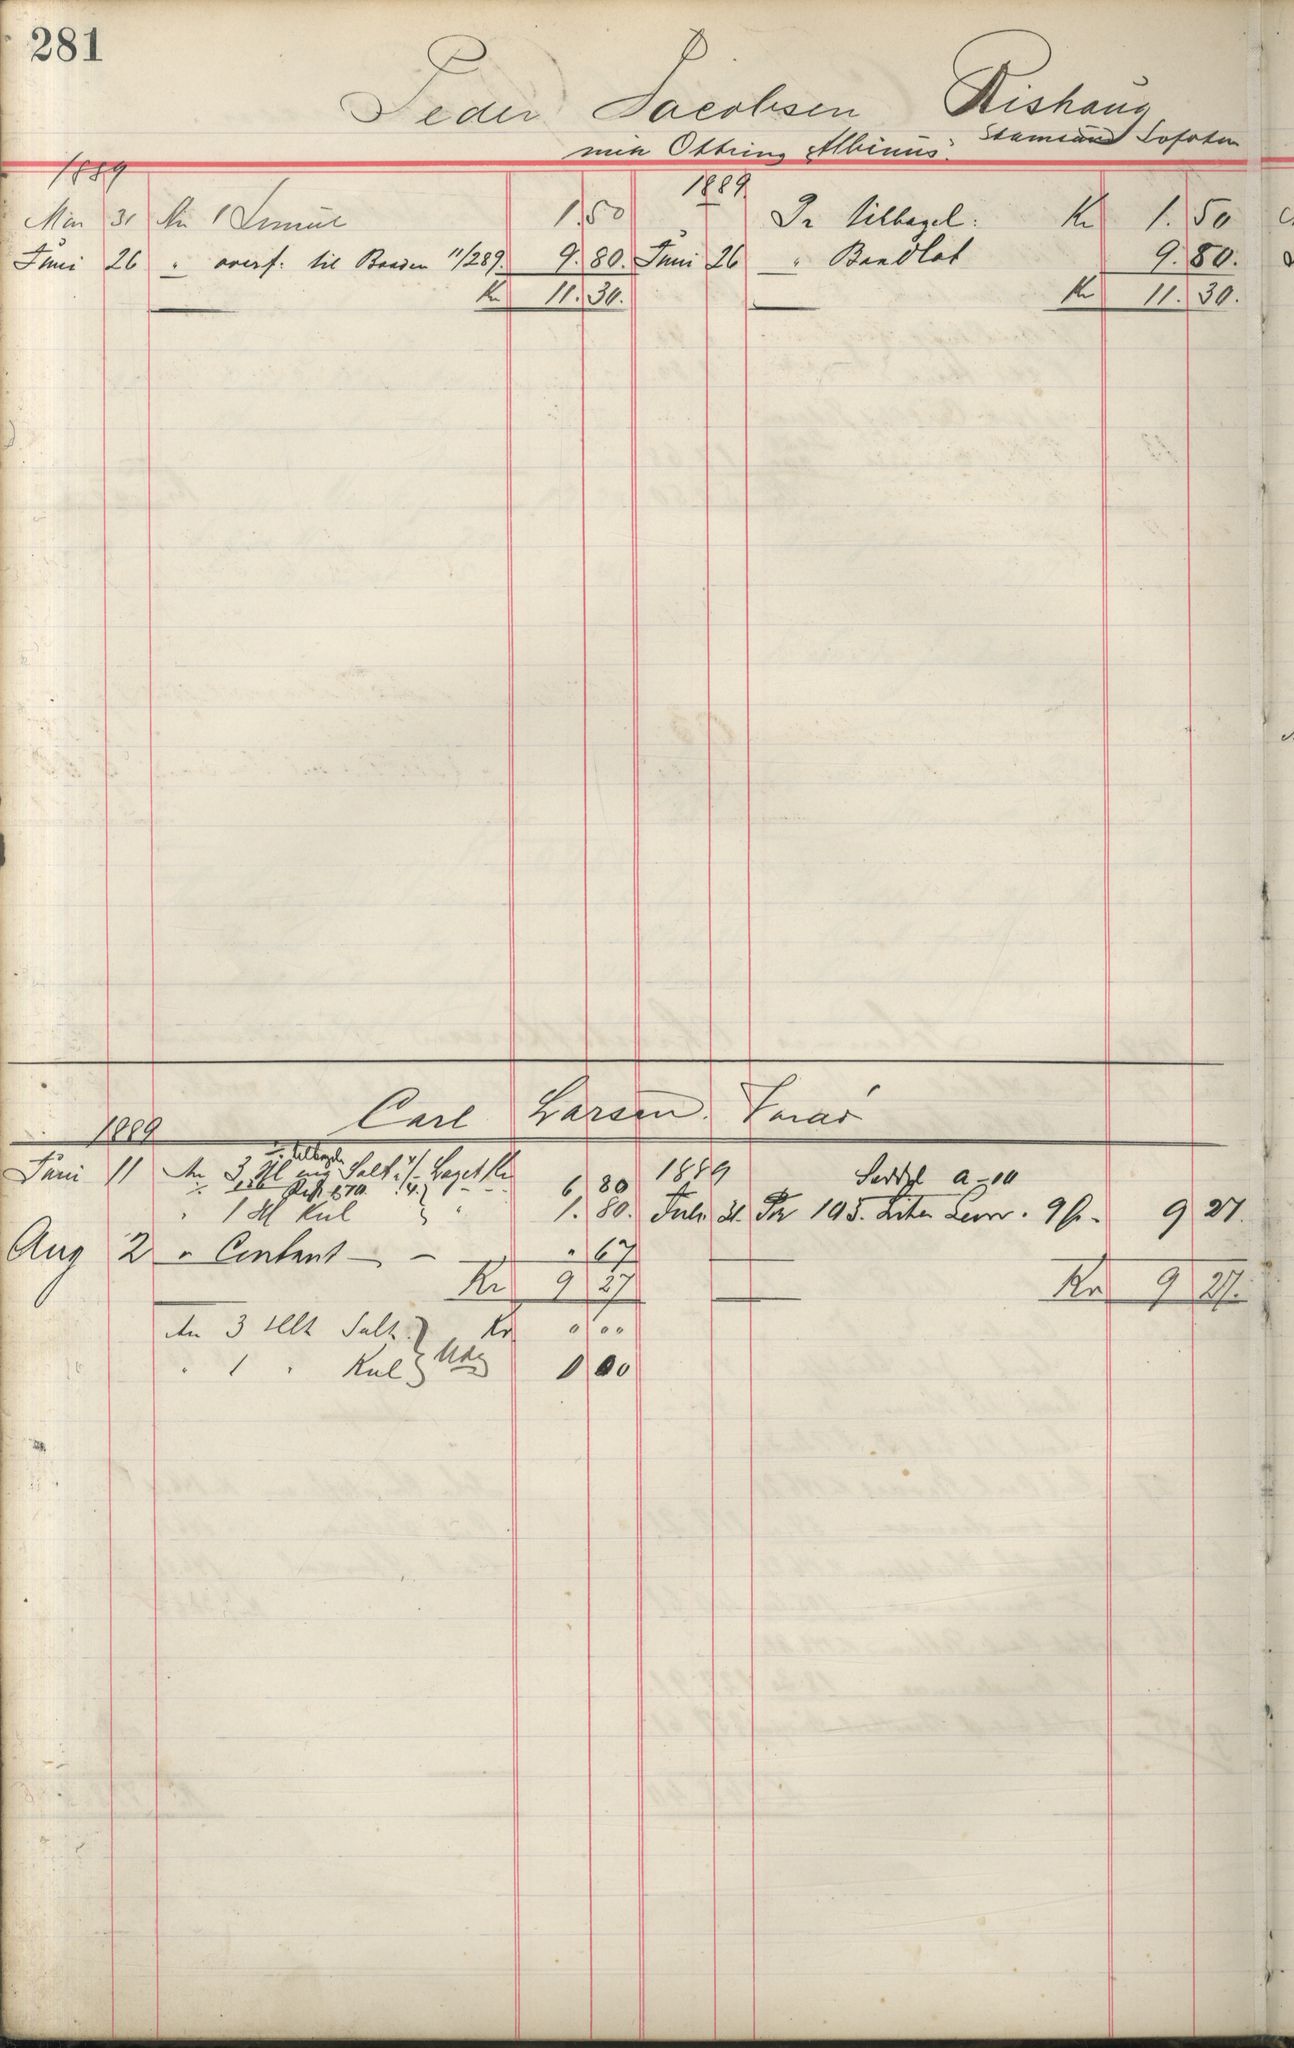 281
Peder Jacobsen Rishaug
mik Ottring Albinus. Stamsund Lofoten
1889 1889
Mar 31 An 1 1.50 Pr tilbagel: Kr 1.50
Juni 26 " overf. til Baaden 11/289. 9.80. Juni 26 " Baadlot 9.80.
Kr 11.30. Kr 11.30.
Carl Larsen. Varaö
1889
÷ tilbagel.
Juni 11 An 3 Hl Salt Laget Kr 6 80 1889 a-10
" 1 Hl Kul " 1.80. Juli 31. Por 103. Liter Levr. 9 9 27.
Aug 2 " Contant — — " 67
Kr 9 27 Kr 9 27.
An 3 Hlt Salt Kr " ""
" 1 " Kul